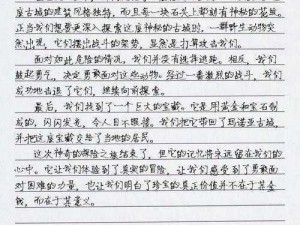 座古城的建筑风格独特，而且每一块石头上都刻有神秘的花纹。
正当我们想要更深入探索这座神秘的古城时，一群野生动物突
然出现，它们摆出战斗的架势，显然是打算攻击我们。
面对如此危险的情况，我们并没有选择逃跑。相反，我们
鼓起勇气，决定勇敢面对这些动物。经过一番激烈的战斗，我们
成功地击退了它们，继续向前探索。
最后，我们找到了一个巨大的宝藏。它是用黄金和宝石制
成的，闪闪发光，令人目不暇接。我们把它带回了玛诺亚古城，
并把这座宝藏交给了当地的居民。
这次神奇的探险之旅结束了，但它的记忆将永远留在我们的
心中。它让我们体验到了真实的冒险，让我们感受到了勇敢面
对困难的力量，也让我们明白了珍宝的真正价值并不在于其金
钱，而在于其意义。